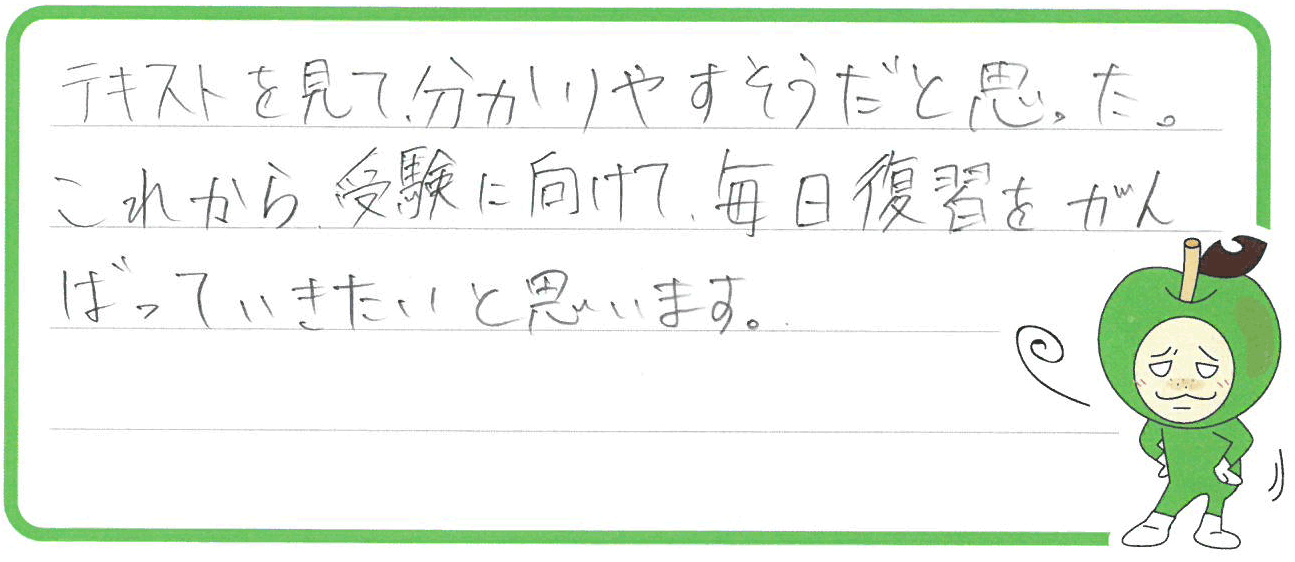 テキストを見て、分かりやすそうだと思った。
これから、受験に向けて、毎日復習をがん
ばっていきたいと思います。